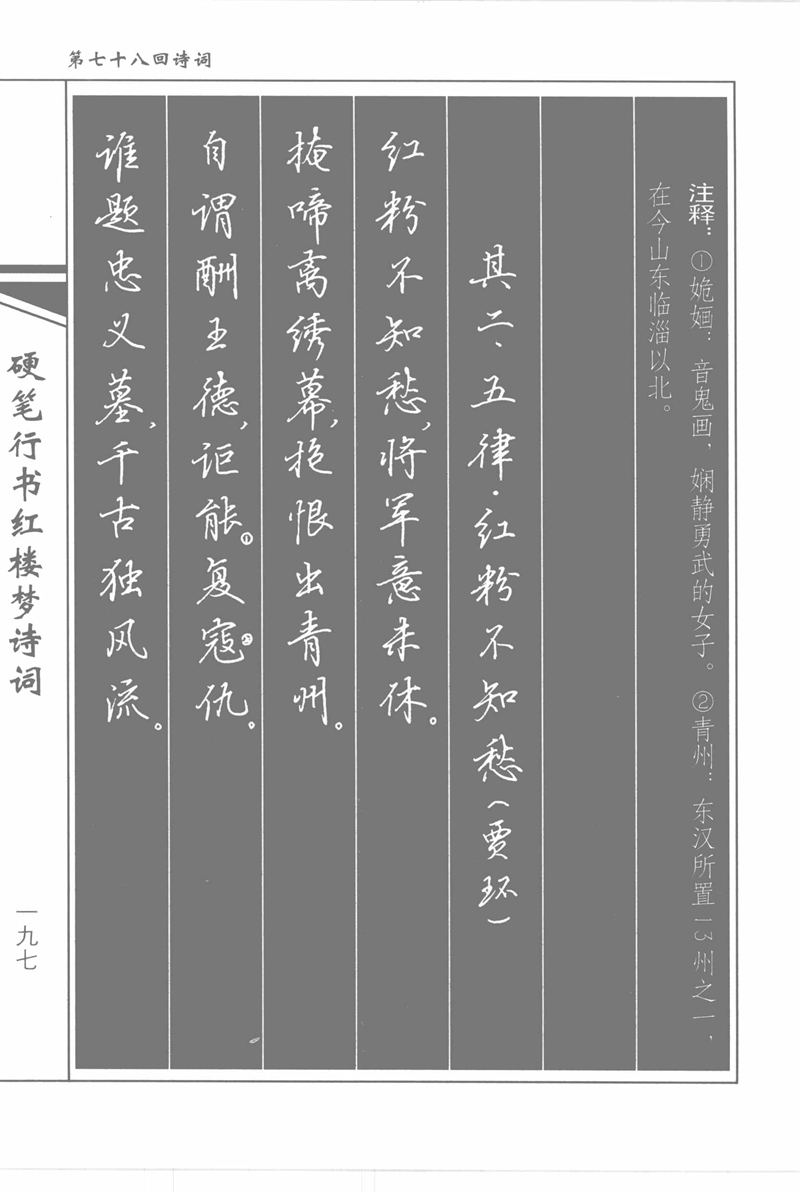 第七十八回诗词
注释：①姽婳：音鬼画，娴静勇武的女子。②青州：东汉所置13州之一，
在今山东临淄以北。
其二、五律·红粉不知愁（贾环）
红粉不知愁，将军意未休。
掩啼离绣幕，抱恨出青州。
自谓酬王德，讵能①复寇②仇。
谁题忠义墓，千古独风流。
硬笔行书红楼梦诗词
一九七